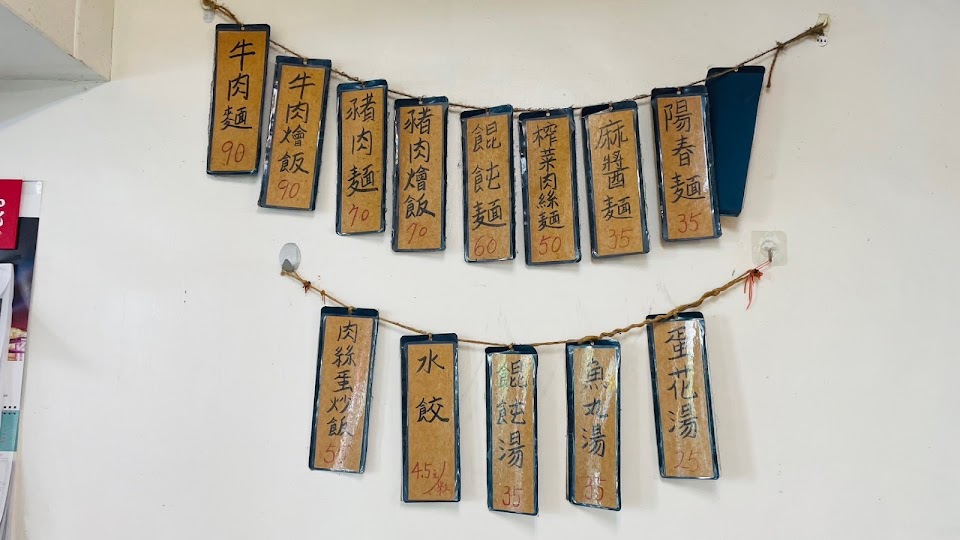 牛肉麵
90
牛肉燴飯
90
豬肉麵
70
豬肉燴飯
70
餛飩麵
60
榨菜肉絲麵
50
麻醬麵
35
陽春麵
35
肉絲蛋炒飯
水餃
4.5元/粒
餛飩湯
35
魚丸湯
35
蛋花湯
25